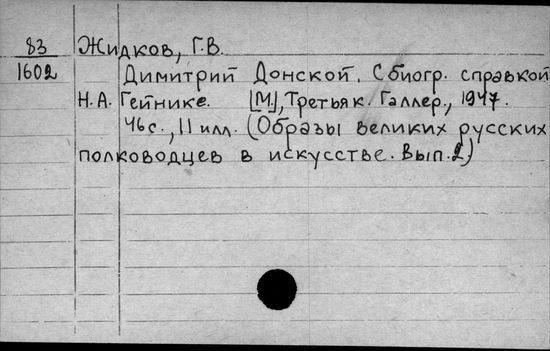 83 Жидков, Г.В.
1602 Димитрий Донской. С биогр. справкой
Н.А. Гейнике. [М], Третьяк. Галлер., 1947.
46 с., 11 илл. (Образы великих русских
полководцев в искусстве. Вып. 2)